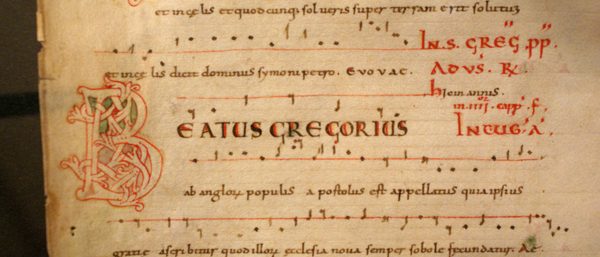 et in celis et quodcunq; solveris super terram erit solutũ
IN. S. GREG̃. PP̃.
et in celis dicit dominus symoni petro. Evovae.
ADVS. R̃
hiem annis
BEATUS GREGORIUS
ab anglorũ populis apostolus est appellatus quia ipsius
gratie ascribitur quod illorũ ecclesia nova semper sobole fecundatur. Ae